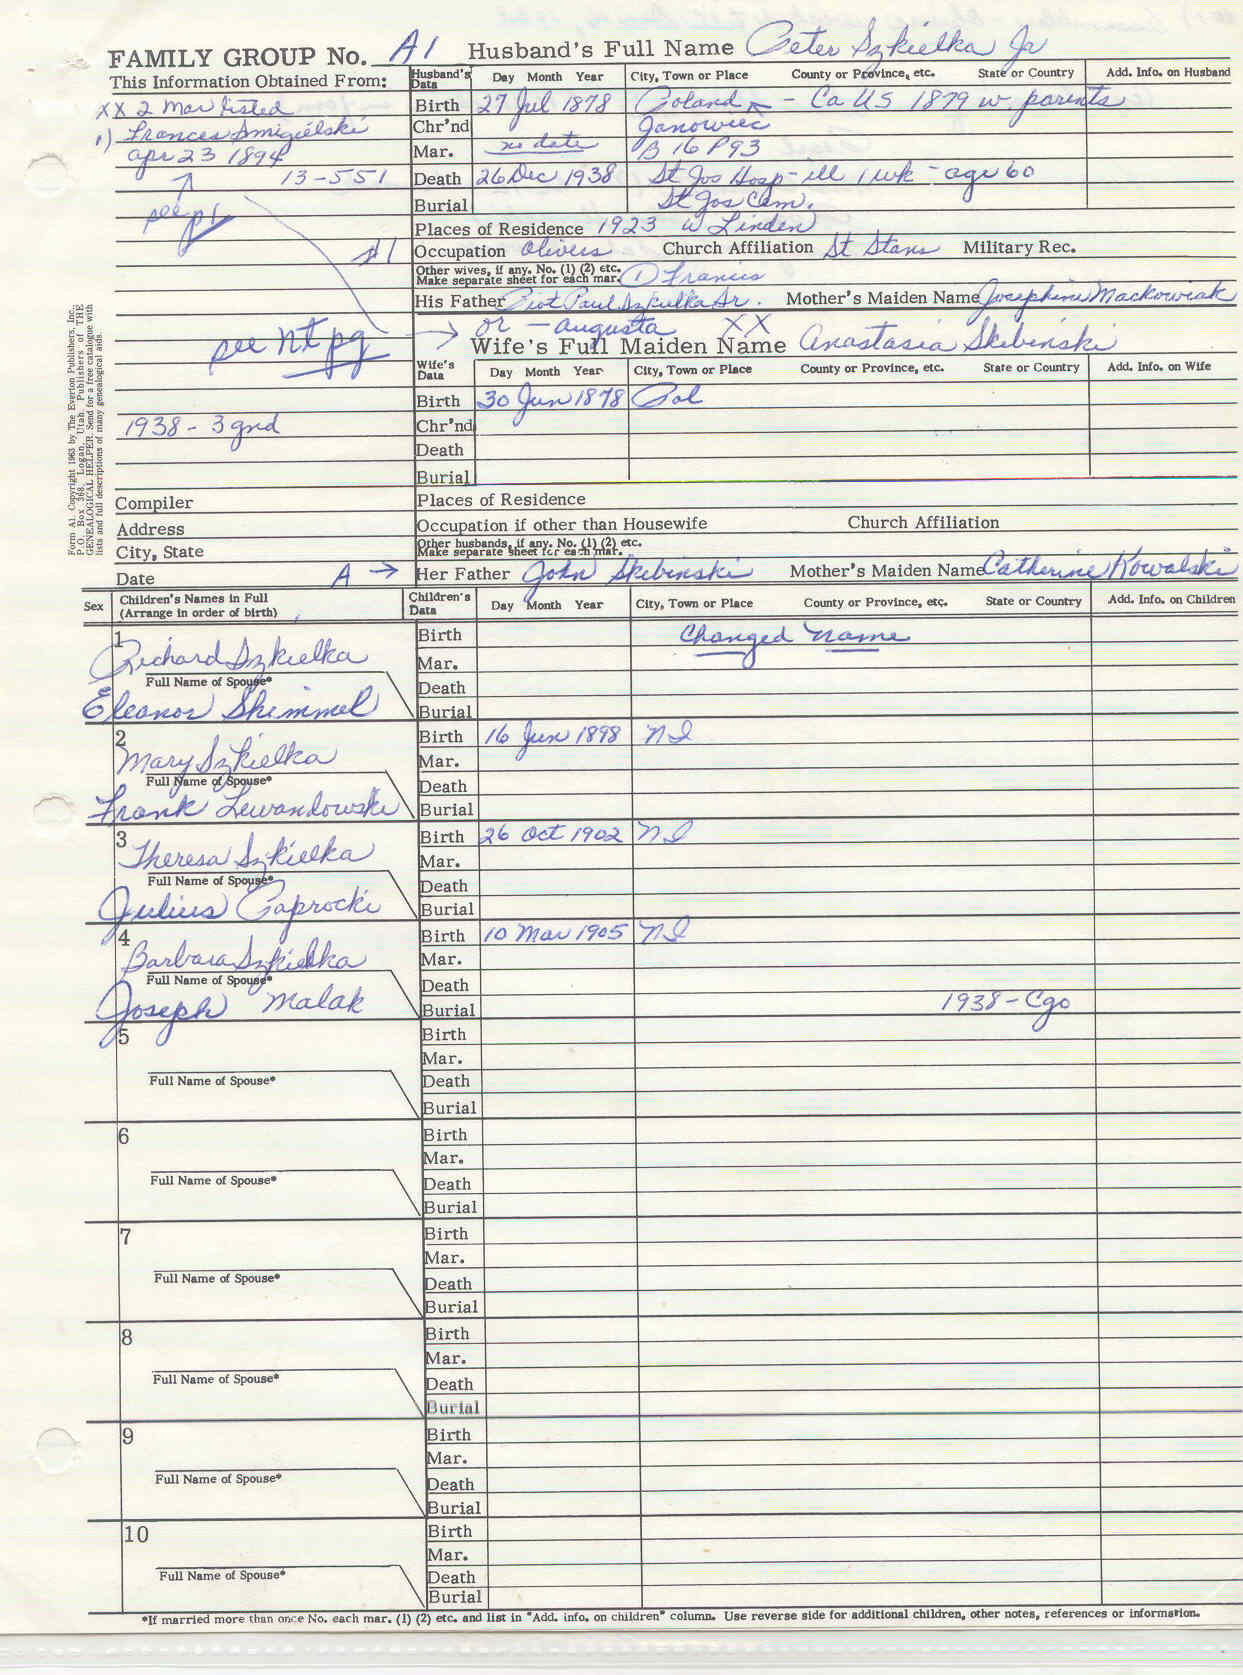 FAMILY GROUP No. A1 Husband's Full Name Peter Szkielka Jr
This Information Obtained From:
Husband's Data Day Month Year City, Town or Place County or Province, etc. State or Country Add. Info. on Husband
xx 2 Mar listed
Birth 27 Jul 1878 Poland - Ca US 1879 w parents
1) Frances Smigielski
Chr'nd Janowiec
apr 23 1894
Mar. no date B 16 P93
13-551
Death 26 Dec 1938 St Jos Hosp - ill 1 wk - age 60
Burial St Jos Cem.
see p1
Places of Residence 1923 W Linden
#1
Occupation Olivers Church Affiliation St Stans Military Rec.
Other wives, if any. No. (1) (2) etc.
Make separate sheet for each mar. 1) Francis
His Father Piot Paul Szkielka Sr. Mother's Maiden Name Josephine Mackowiak
or - augusta XX
see nt pg
Wife's Full Maiden Name Anastasia Skibinski
Wife's Data Day Month Year City, Town or Place County or Province, etc. State or Country Add. Info. on Wife
Birth 30 Jun 1878 Pol
1938 - 3 gnd
Chr'nd
Death
Burial
Form A1. Copyright 1963 by The Everton Publishers, Inc.,
P.O. Box 368, Logan, Utah. Publishers of THE
GENEALOGICAL HELPER. Send for a free catalogue with
lists and full descriptions of many genealogical aids.
Compiler
Places of Residence
Address
Occupation if other than Housewife Church Affiliation
City, State
Other husbands, if any. No. (1) (2) etc.
Make separate sheet for each mar.
Date A
Her Father John Skibinski Mother's Maiden Name Catherine Kowalski
Sex Children's Names in Full
(Arrange in order of birth)
Children's Data Day Month Year City, Town or Place County or Province, etc. State or Country Add. Info. on Children
1 Birth Changed name
Richard Szkielka
Mar.
Full Name of Spouse*
Death
Eleanor Shimmel
Burial
2 Birth 16 Jun 1898 ND
Mary Szkielka
Mar.
Full Name of Spouse*
Death
Frank Lewandowski
Burial
3 Birth 26 Oct 1902 ND
Theresa Szkielka
Mar.
Full Name of Spouse*
Death
Julius Paprocki
Burial
4 Birth 10 Mar 1905 ND
Barbara Szkielka
Mar.
Full Name of Spouse*
Death
Joseph Malak
Burial 1938 - Cgo
5 Birth
Mar.
Full Name of Spouse*
Death
Burial
6 Birth
Mar.
Full Name of Spouse*
Death
Burial
7 Birth
Mar.
Full Name of Spouse*
Death
Burial
8 Birth
Mar.
Full Name of Spouse*
Death
Burial
9 Birth
Mar.
Full Name of Spouse*
Death
Burial
10 Birth
Mar.
Full Name of Spouse*
Death
Burial
*If married more than once No. each mar. (1) (2) etc. and list in "Add. info. on children" column. Use reverse side for additional children, other notes, references or information.